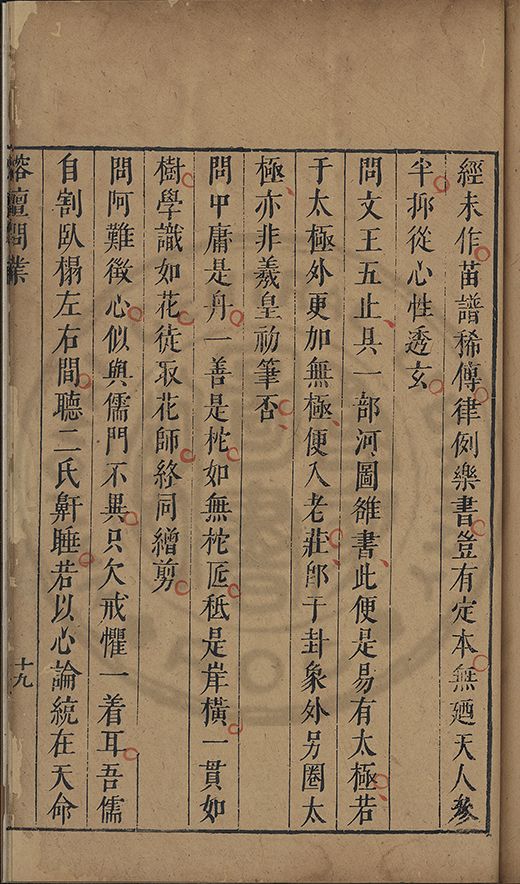 經未作苗譜稀傳律例樂書豈有定本無廼天人參
半抑從心性透玄
問文王五止具一部河圖雒書此便是易有太極若
于太極外更加無極便入老莊卽于卦象外另圈太
極亦非羲皇初筆否
問中庸是舟一善是柁如無柁匜秪是岸橫一貫如
樹學識如花徒取花師終同繒剪
問阿難徵心似與儒門不異只欠戒懼一着耳吾儒
自割臥榻左右間聽二氏鼾睡若以心論統在天命
榕壇問業
十九